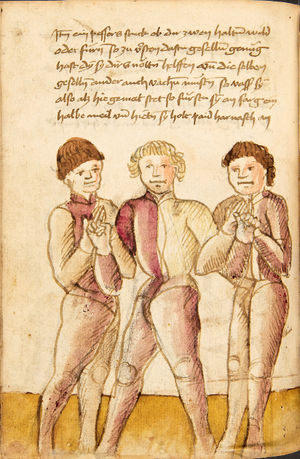 Itm ein pessers stuck ob du zwen halten wild
oder fürn so zu östen dastu gesellen genüg
hast dy dirs nölten helffen und die selben
gesellen ander auch vachn müsten so vass sy
also als hie gemalt stet so fürstu sy an sarg ein
halbe meil und hietn sy holt kaid harnasch an